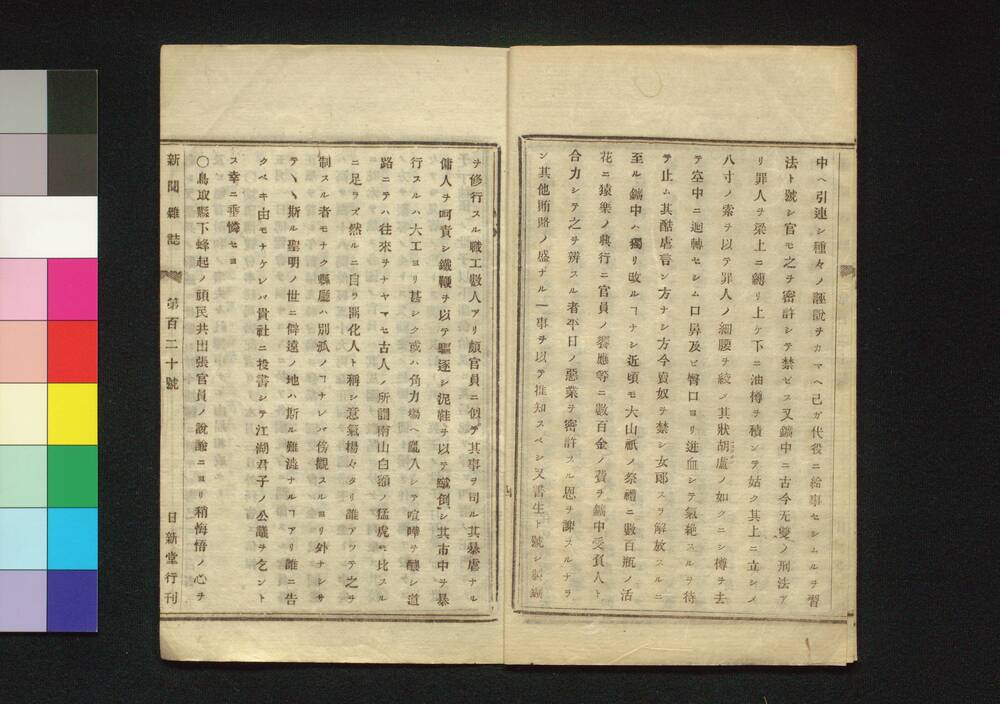 中ヘ引連シ種々ノ誣説ヲカマヘ己ガ代役ニ給事セシムルヲ習
法ト號シ官モ之ヲ密許シテ禁ゼス又鑛中ニ古今无雙ノ刑法ア
リ罪人ヲ梁上ニ縛リ上ケ下ニ油樽ヲ積ンテ姑ク其上ニ立シメ
八寸ノ索ヲ以テ罪人ノ細腰ヲ絞メ其狀胡盧ノ如クニシ樽ヲ去
テ空中ニ迴轉セシム口鼻及ビ臀口ヨリ迸血シテ氣絶スルヲ待
テ止ム其酷虐言ン方ナシ方今賣奴ヲ禁シ女郎スラ解放スルニ
至ル鑛中ハ獨リ改ルヿナシ近頃モ大山祇ノ祭禮ニ數百瓶ノ活
花ニ猿樂ノ興行ニ官員ノ饗應等ニ數百金ノ費ヲ鑛中受負人ト
合力シテ之ヲ辨スル者平日ノ惡業ヲ密許スル恩ヲ謝スルナラ
ン其他賄賂ノ盛ナル一事ヲ以テ推知スベシ又書生ト號シ製鑛
ヲ修行スル職工數人アリ頗官員ニ似テ其事ヲ司ル其暴虐ナル
傭人ヲ呵責シ鐵鞭ヲ以テ驅逐シ泥鞋ヲ以テ蹴倒シ其市中ヲ暴
行スルハ大工ヨリ甚シク或ハ角力場ヘ亂入シテ喧嘩ヲ釀シ道
路ニテハ往來ヲナヤマセ古人ノ所謂南山白額ノ猛虎モ比スル
ニ足ラズ然ルニ自ラ開化人ト稱シ意氣揚々タリ誰アツテ之ヲ
制スル者モナク縣廳ハ別派ノヿナレバ傍觀スルヨリ外ナシサ
テヽヽ斯ル聖明ノ世ニ僻遠ノ地ハ斯ル難澁ナルヿアリ誰ニ告
クベキ由モナケレバ貴社ニ投書シテ江湖君子ノ公議ヲ乞ント
ス幸ニ垂憐セヨ
〇鳥取縣下蜂起ノ頑民共出張官員ノ說諭ニヨリ稍悔悟ノ心ヲ
新聞雜誌 第百二十號 日新堂行刊